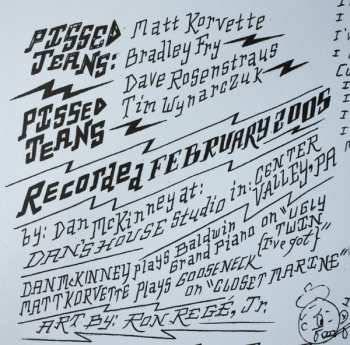 PISSED JEANS: Matt Korvette
Bradley Fry
Dave Rosenstraus
Tim Wynarczuk
PISSED JEANS
Recorded FEBRUARY 2005
by: Dan McKinney at:
DAN'S HOUSE Studio in: CENTER VALLEY, PA
DAN McKINNEY plays Baldwin Grand Piano on "UGLY TWIN {I've got}"
MATT KORVETTE Plays GOOSENECK on "CLOSET MARINE"
ART By: RON REGÉ, Jr.